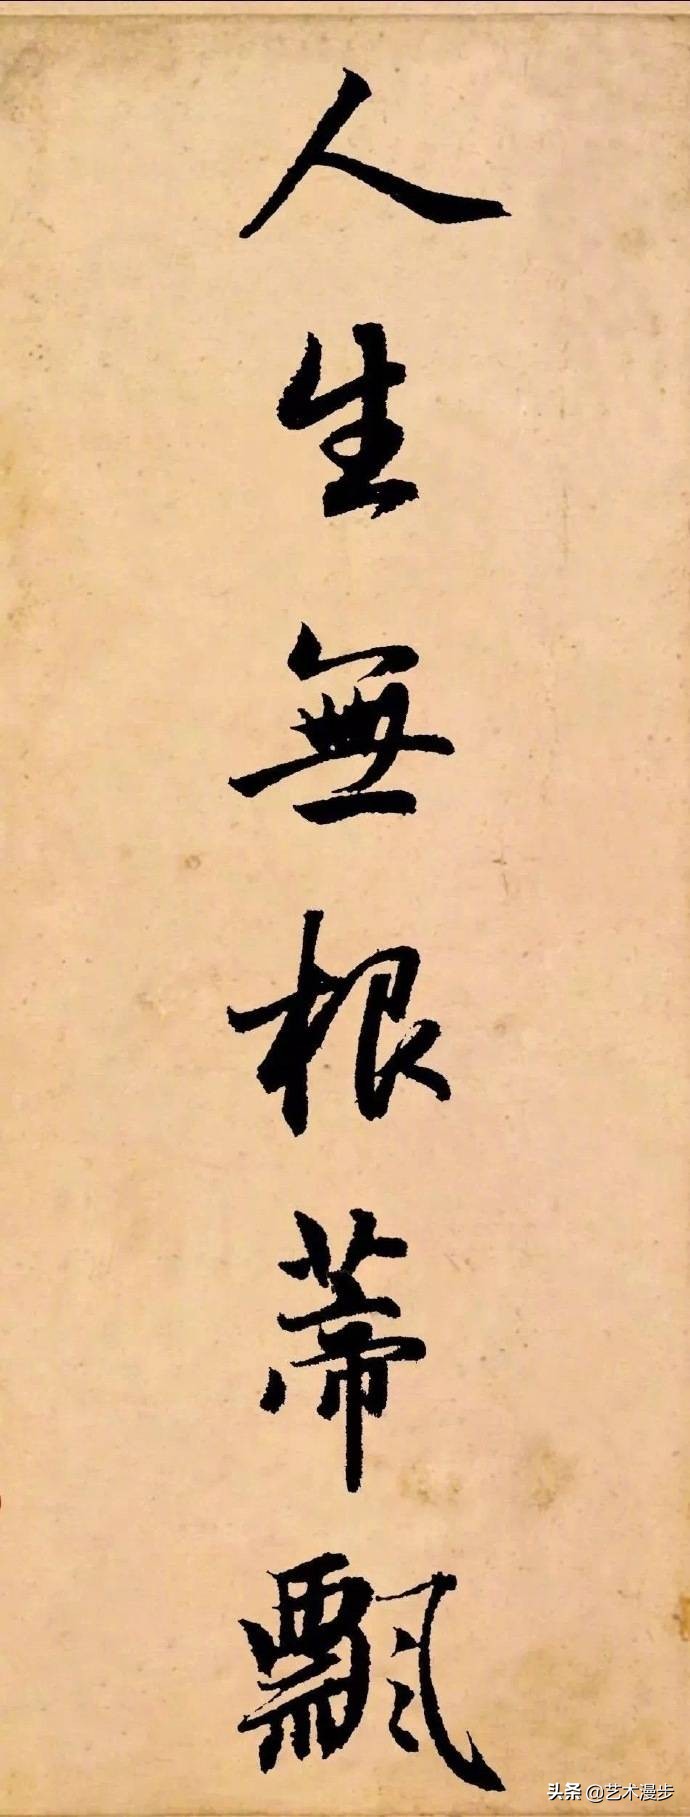 人生無根蒂飄
头条 @艺术漫步